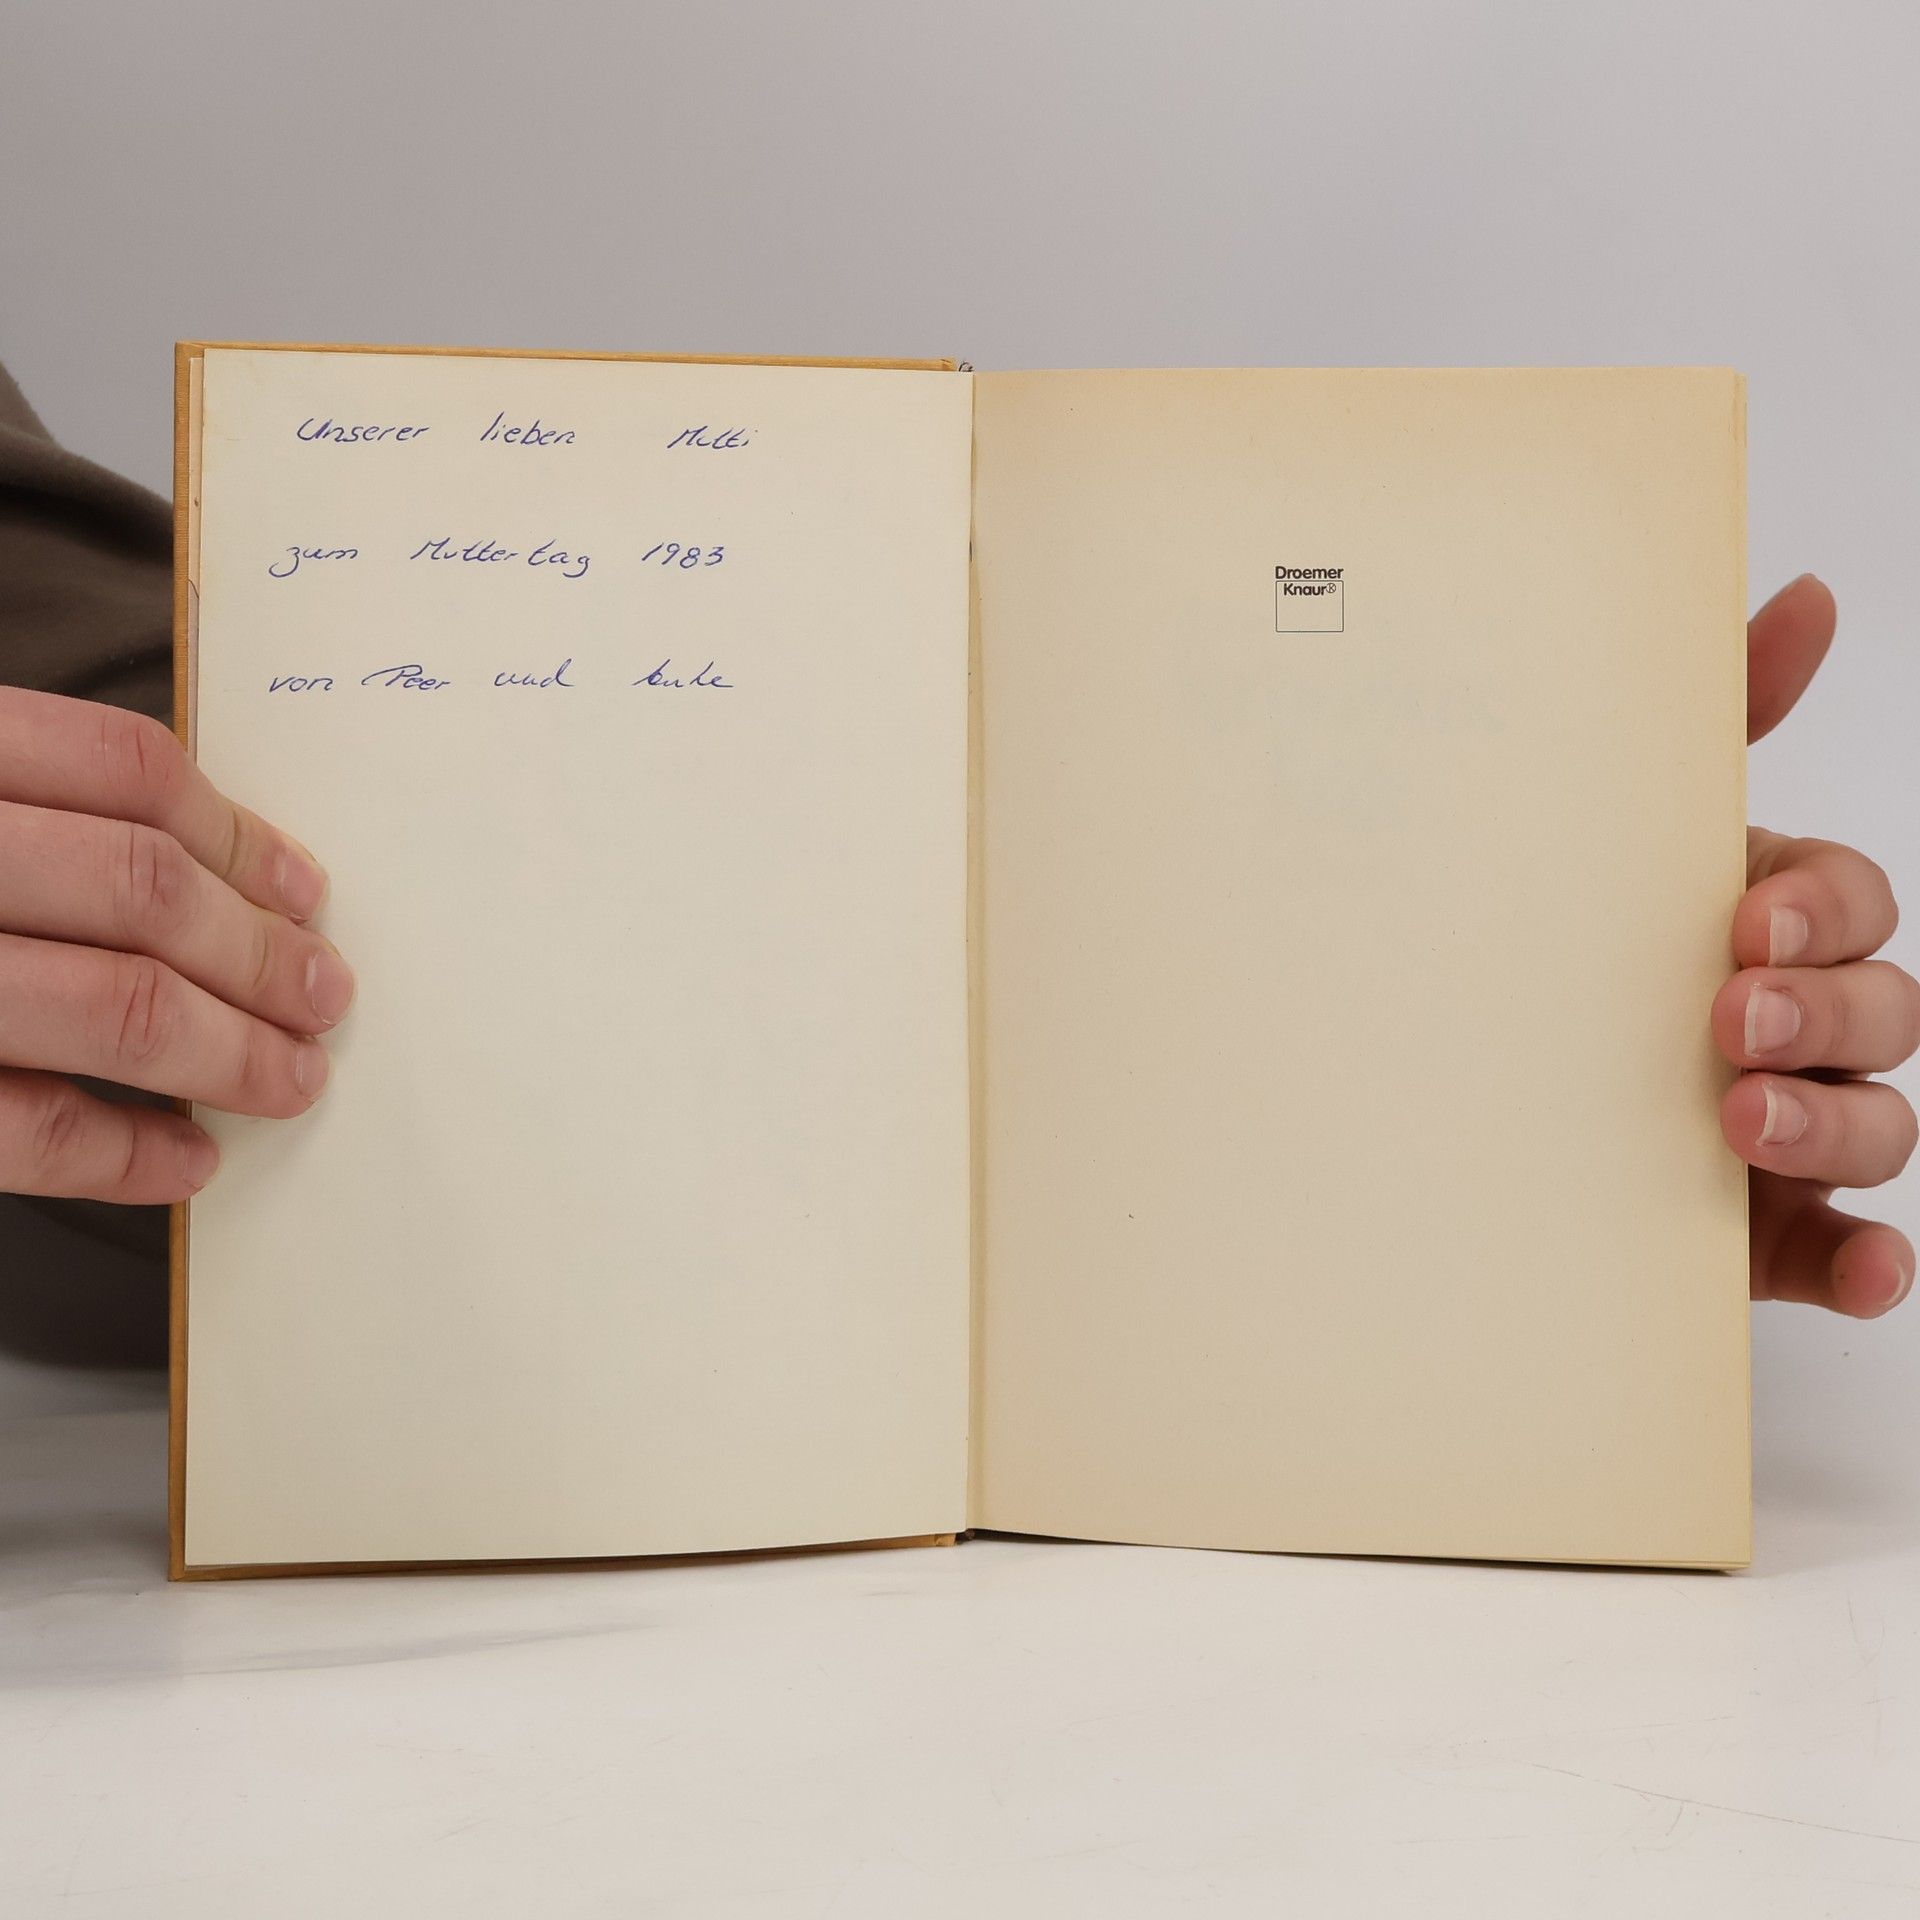 Unserer lieben Mutti
zum Muttertag 1983
von Peer und
Droemer
Knaur®